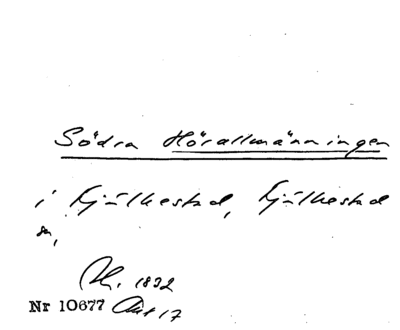 Södra Hörallmänningen
i Fjälkestad, Fjälkestad
sn,
Sk. 1832
Nr 10677 Akt 17